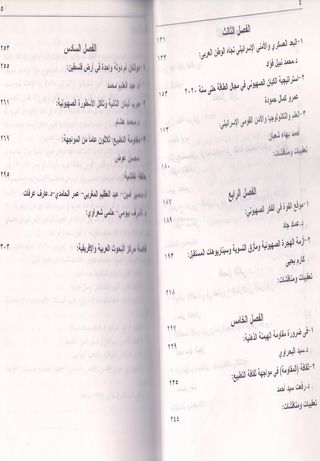 ٤
الفصل الثالث ١٣١
١-البعد العسكري والأمني الإسرائيلي تجاه الوطن العربي: ١٣٣
د. محمد نبيل فؤاد
٢-استراتيجية الكيان الصهيوني في مجال الطاقة حتى سنة ٢٠٢٠ ١٥٣
عمرو كمال حمودة
٣-العلم والتكنولوجيا والأمن القومي الإسرائيلي ١٧٣
أحمد بهاء شعبان
تعقيبات ومناقشات: ١٨٠
الفصل الرابع ١٨٧
١-موقع القوة في الفكر الصهيوني: ١٨٩
د. عماد جاد
٢-أزمة الهجرة الصهيونية ومأزق التسوية وسيناريوهات المستقبل: ١٩٣
كارم يحيى
تعقيبات ومناقشات: ٢١٨
الفصل الخامس ٢٢٧
١-في ضرورة مقاومة الهيمنة الذهنية: ٢٢٩
د. سيد البحراوي
٢-ثقافة (المقاومة) في مواجهة ثقافة التطبيع: ٢٣٥
د. رفعت سيد أحمد
تعقيبات ومناقشات: ٢٤٤
٥
الفصل السادس ٢٥٣
دولتان أم دولة واحدة في أرض فلسطين: ٢٥٥
عبد العليم محمد
حرب لبنان الثانية وتآكل الأسطورة الصهيونية: ٢٦١
محمد هشام
مقاومة التطبيع: ثلاثون عاما من المواجهة: ٢٦٩
محسن عوض
حلقة نقاشية: ٢٩٥
أمين- عبد العظيم المغربي- عمر الحامدي-د. عارف عرفات
بيومي- حلمي شعراوي
قائمة مركز البحوث العربية والإفريقية: ٣٠٣